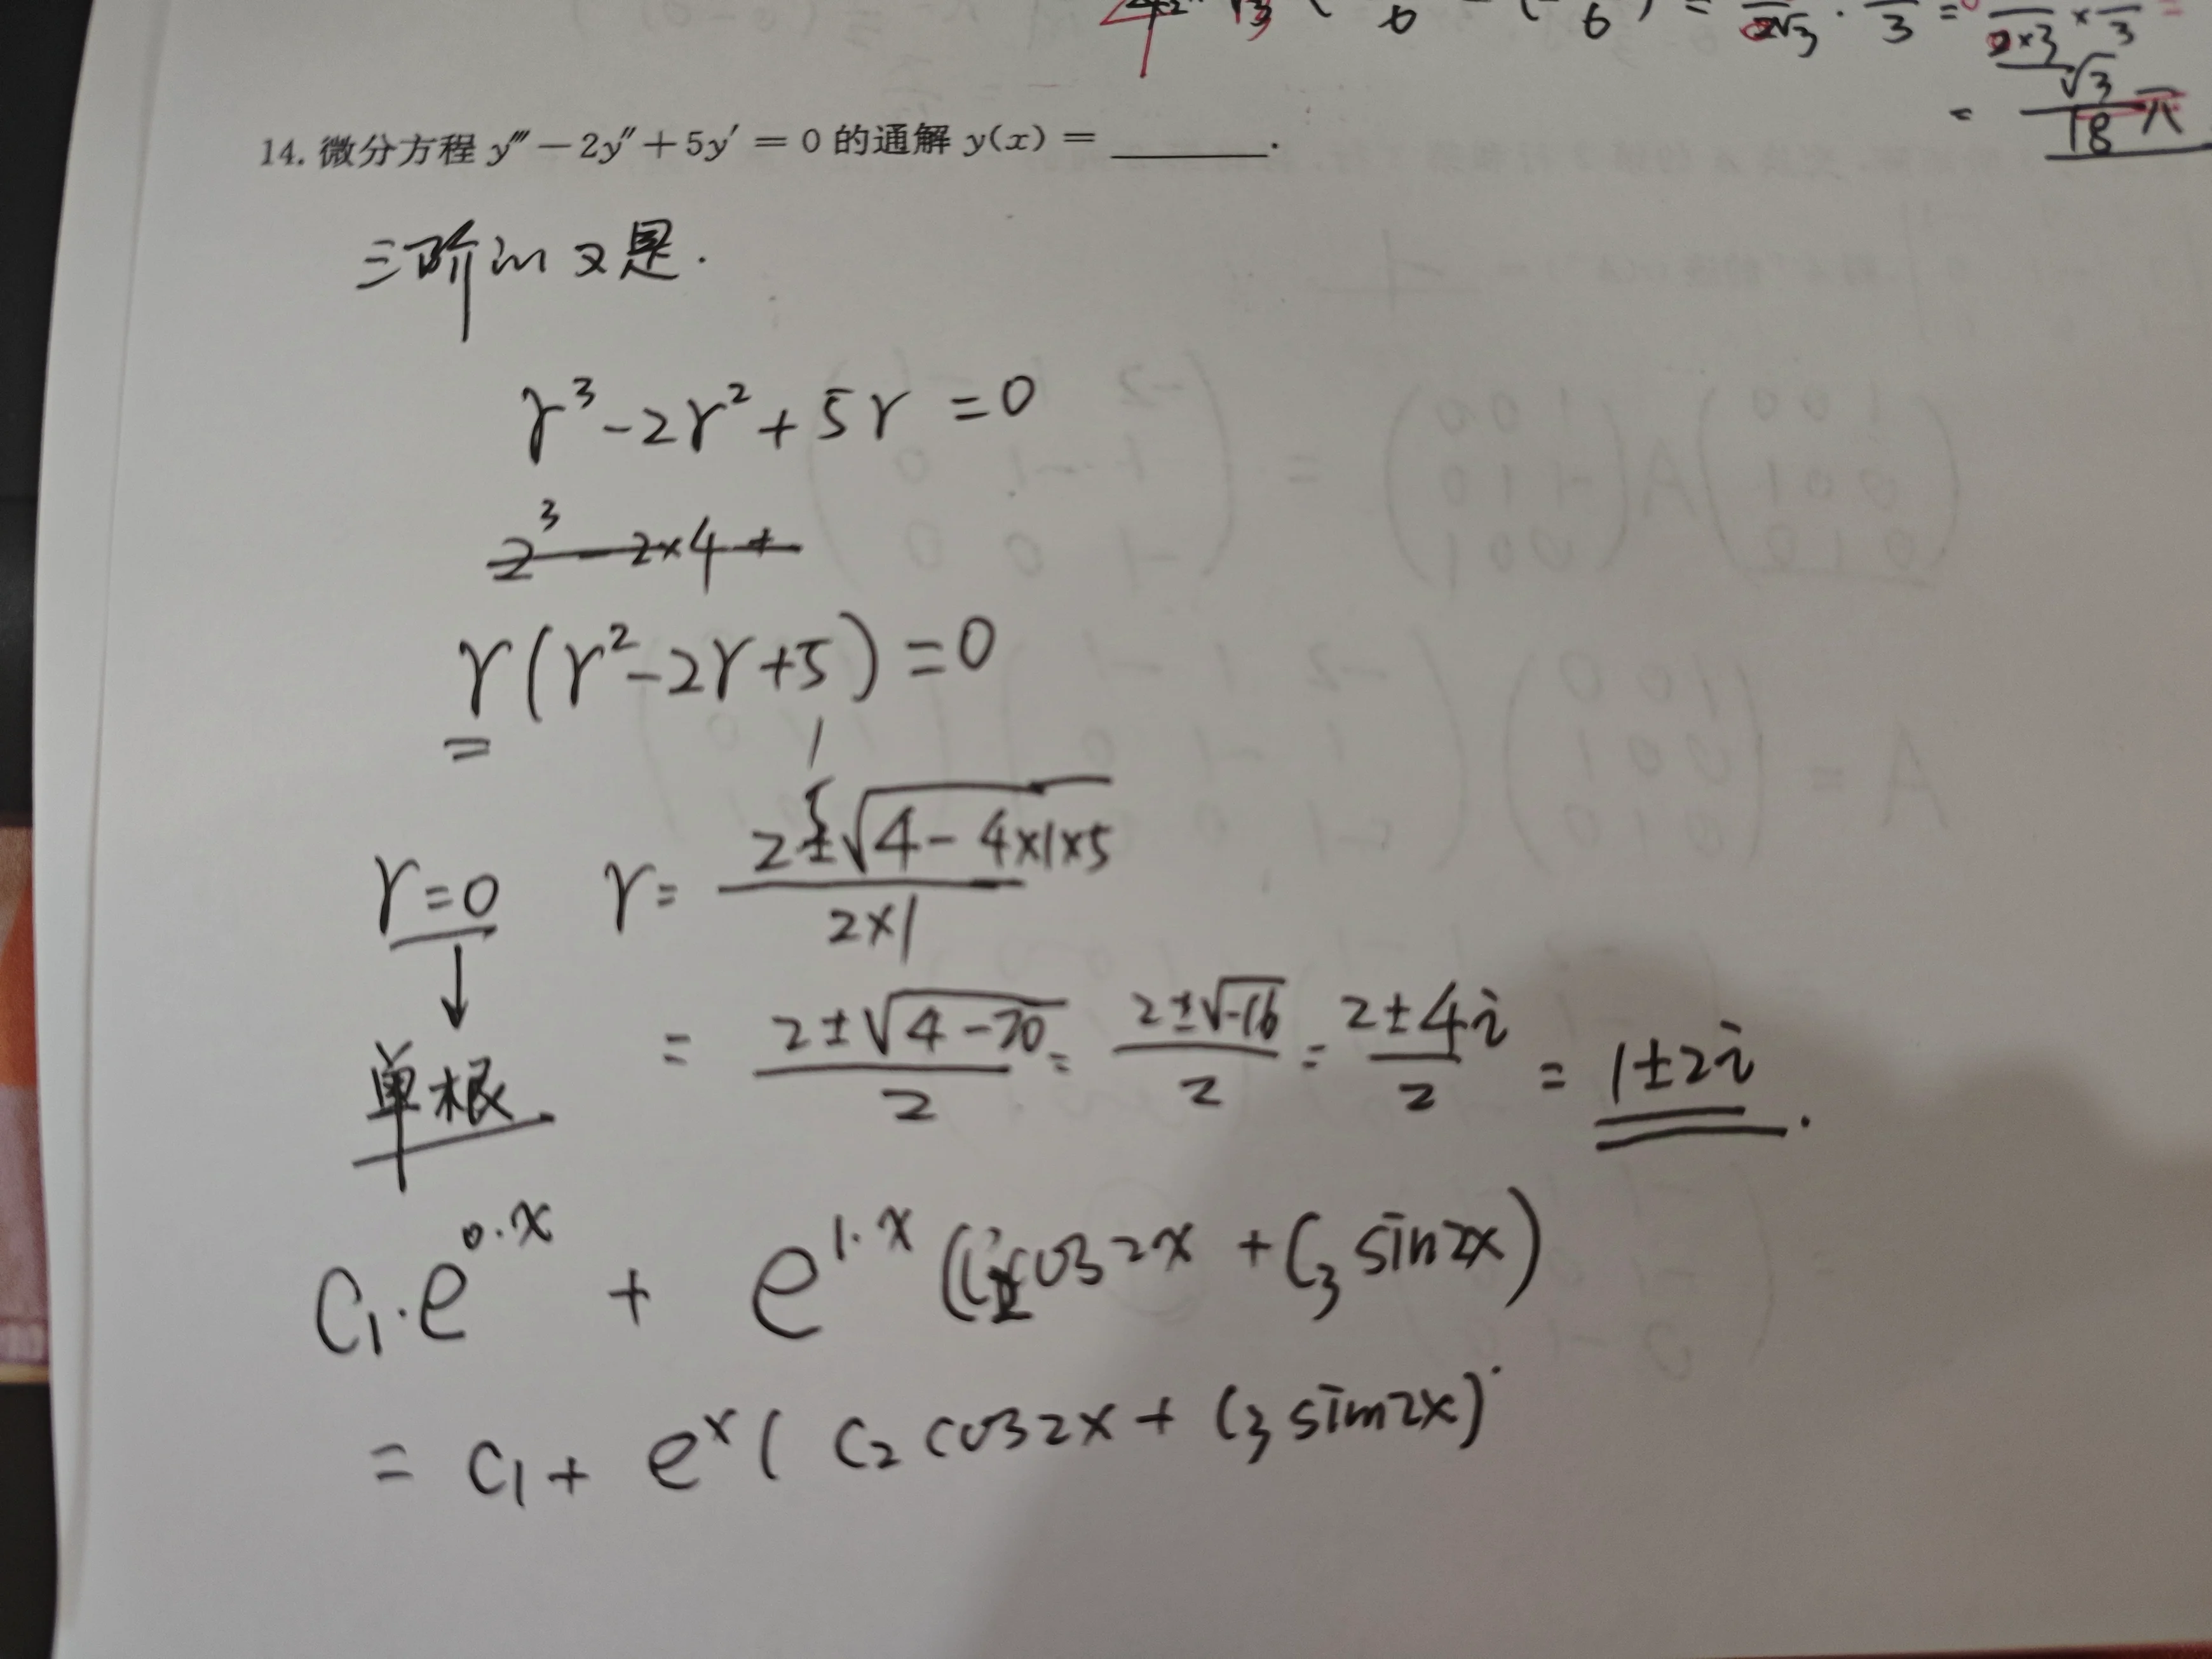 6 6 2√3 · 3 = 2×3 × 3
= √3/18 π
14. 微分方程 y‴ − 2y″ + 5y′ = 0 的通解 y(x) = ________.
三阶的又是.
r³ - 2r² + 5r = 0
2³ - 2×4 +
r(r² - 2r + 5) = 0
=
r=0 r= (2±√(4-4×1×5))/(2×1)
↓
单根 = (2±√(4-20))/2 = (2±√-16)/2 = (2±4i)/2 = 1±2i.
C₁·e^(0·x) + e^(1·x) (C₂cos2x + C₃ sin2x)
= C₁ + e^x ( C₂ cos2x + C₃ sin2x)